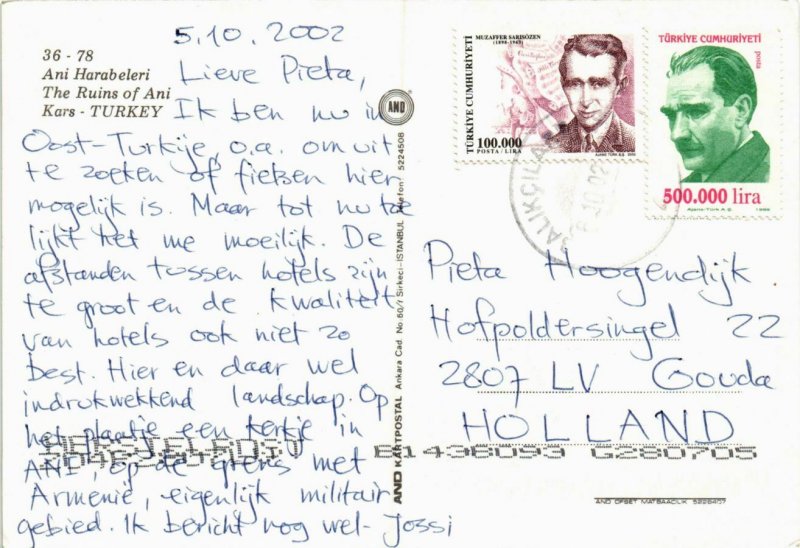 5.10.2002
36 - 78
Ani Harabeleri
The Ruins of Ani
Kars - TURKEY
Lieve Pieta,
Ik ben nu in
Oost-Turkije o.a. om uit
te zoeken of fietsen hier
mogelijk is. Maar tot nu toe
lijkt het me moeilijk. De
afstanden tussen hotels zijn
te groot en de kwaliteit
van hotels ook niet zo
best. Hier en daar wel
indrukwekkend landschap. Op
het plaatje een kerkje in
ANI, op de grens met
Armenië, eigenlijk militair
gebied. Ik bericht nog wel- Jossi
AND
AND KARTPOSTAL Ankara Cad. No. 60/1 Sirkeci-İSTANBUL Telefon: 5224508
MUZAFFER SARISÖZEN
TÜRKİYE CUMHURİYETİ
100.000
POSTA / LİRA
TÜRKİYE CUMHURİYETİ
posta
500.000 lira
Ajans-Türk A.Ş.
Pieta Hoogendijk
Hofpoldersingel 22
2807 LV Gouda
HOLLAND
B1438093 G280705
AND OFSET MATBAACILIK 5226407